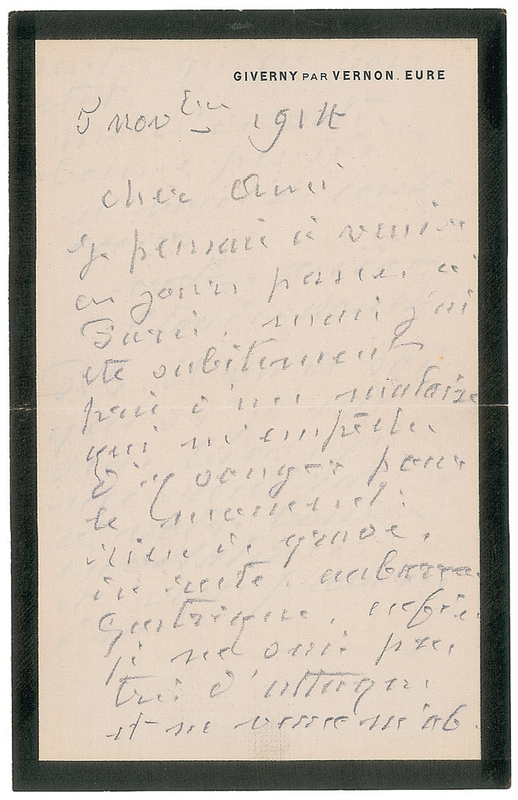 GIVERNY PAR VERNON. EURE
5 novbre 1914
cher Ami
je pensais à venir
ces jours passés à
Paris, mais j'ai
été subitement
pris d'un malaise
qui m'empêche
d'y songer pour
le moment.
rien de grave,
embarras
gastrique, enfin
je ne suis pas
très d'attaque
et ne veux m'ab